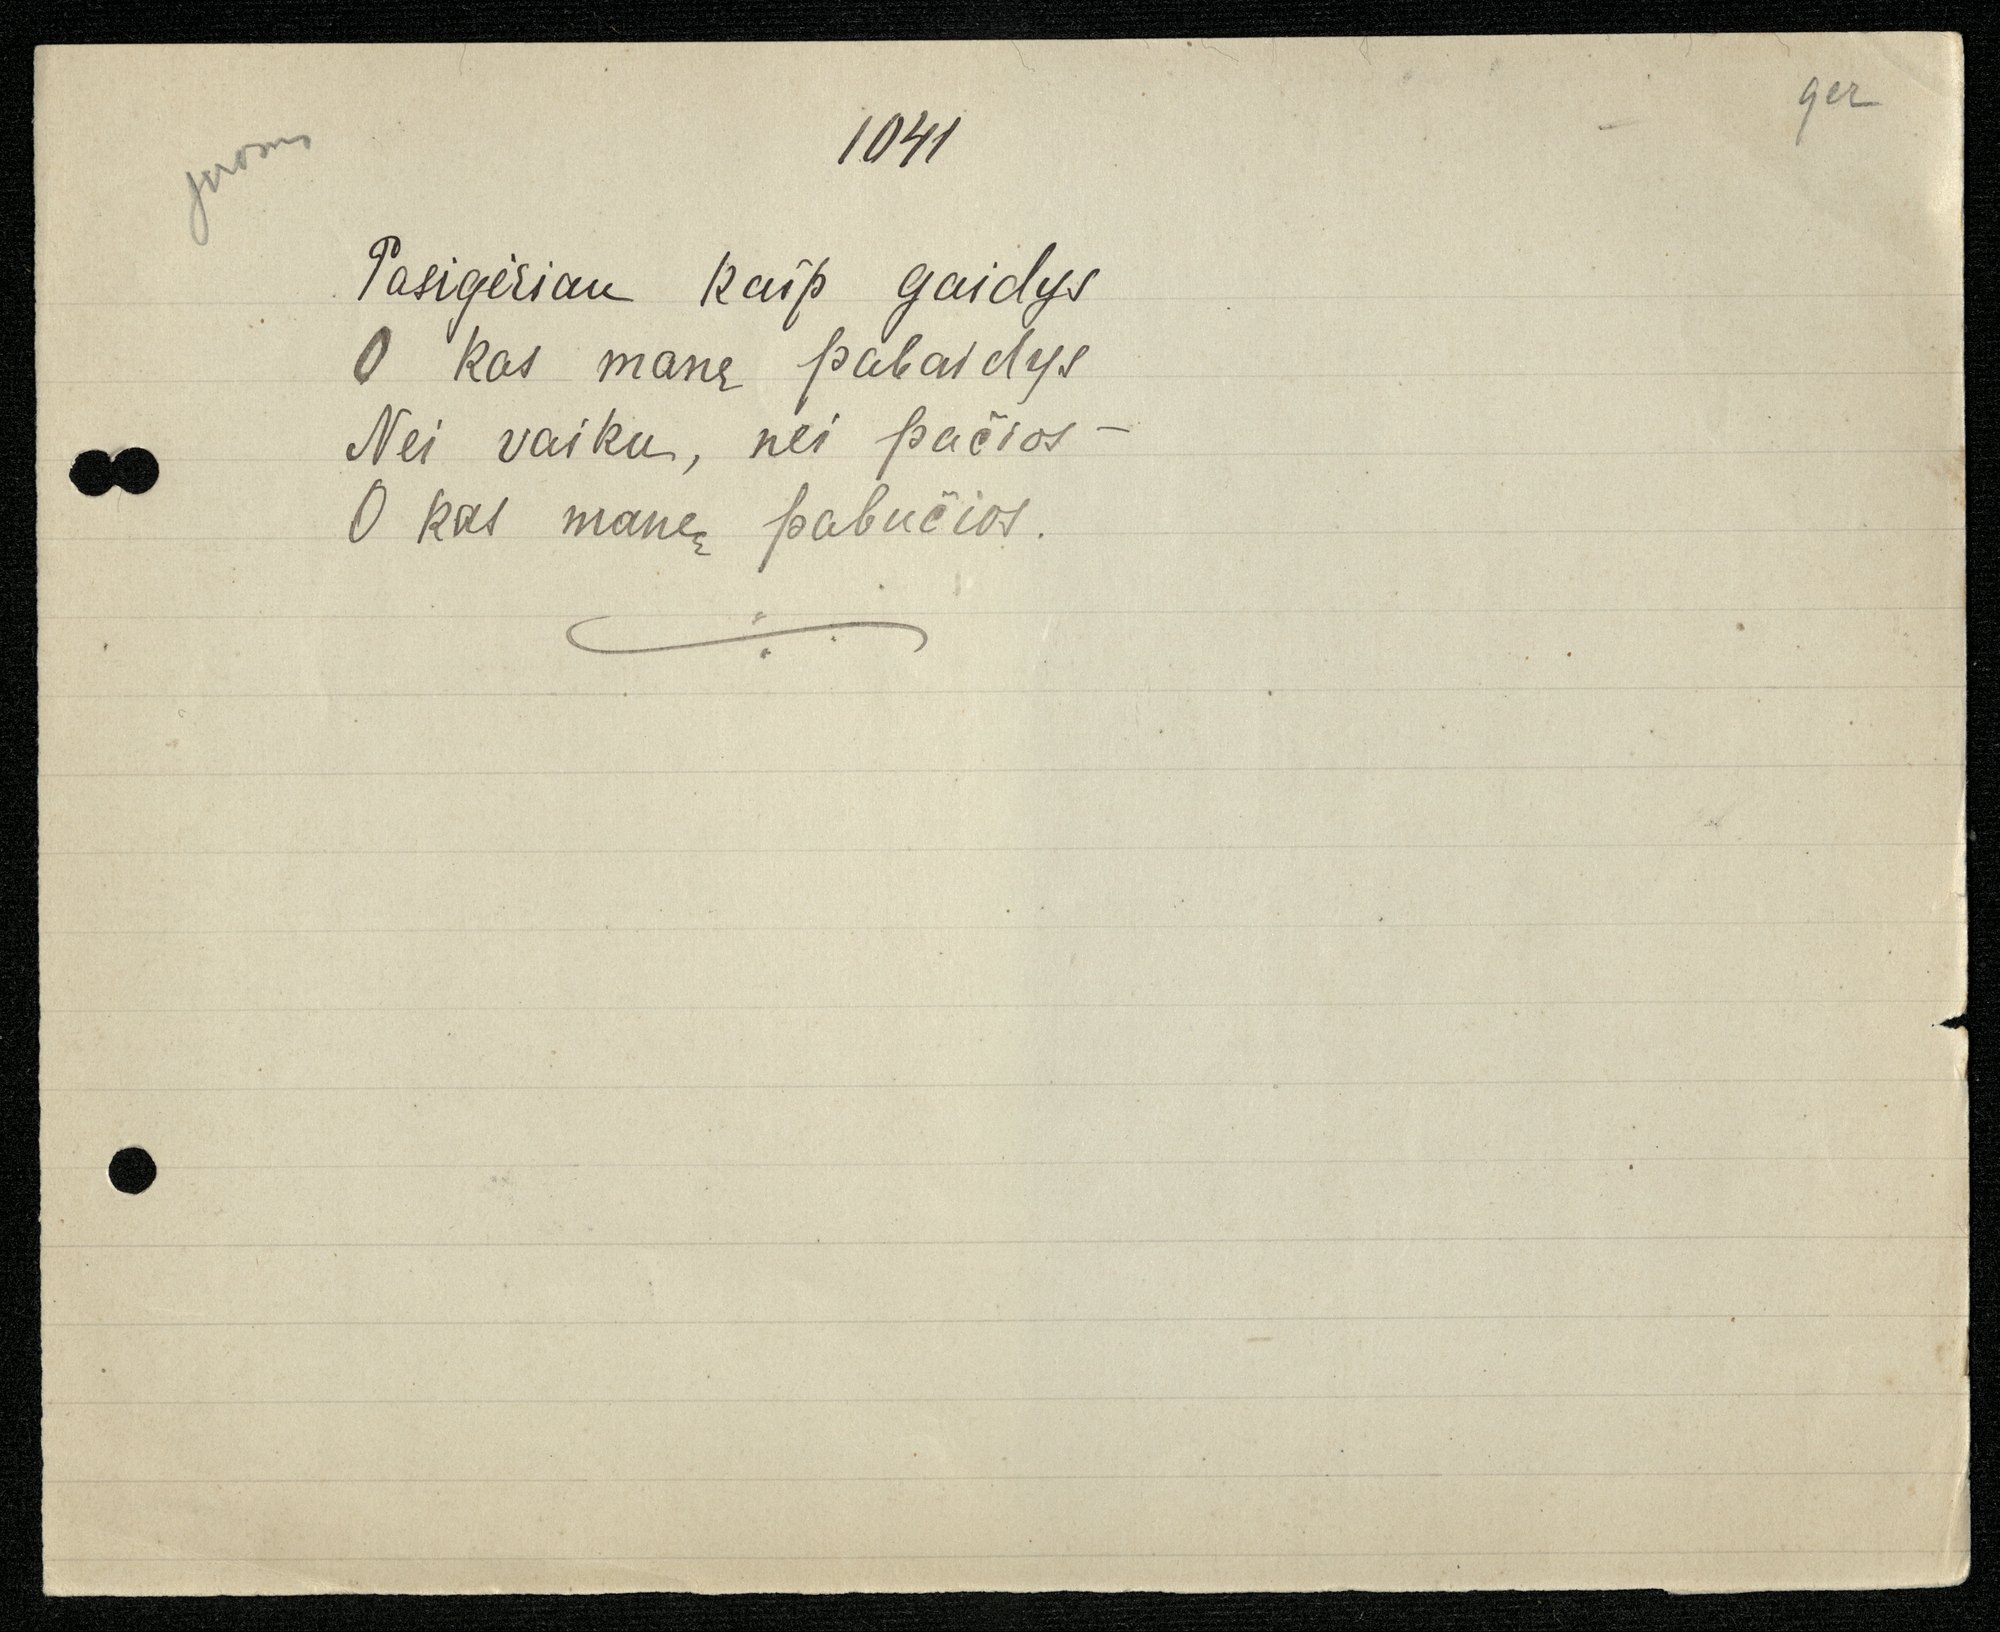 ger
1041
Pasigėriau kaip gaidys
O kas manę pabaidys
Nei vaiku, nei pačios –
O kas manę pabučios.